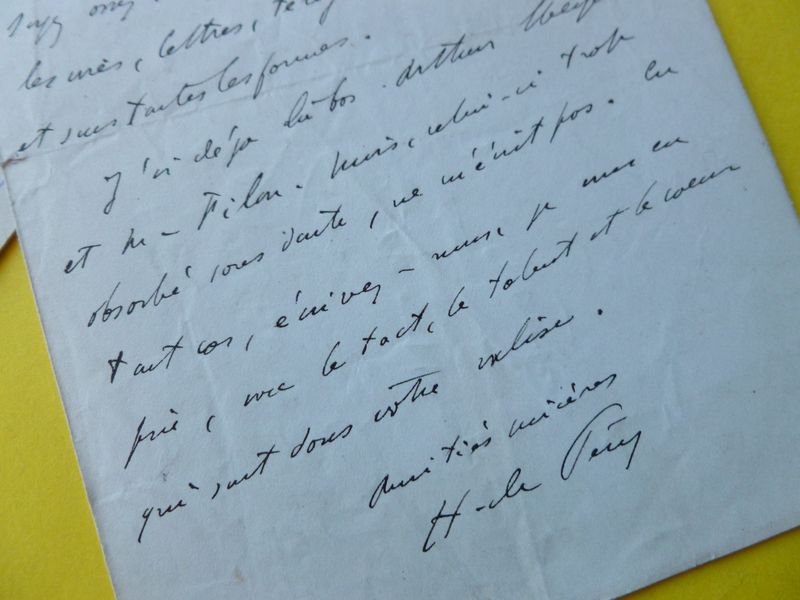 les uns, lettres,
et sous toutes les formes.
J'ai déjà là-bas Arthur Meyer
et M- Filon. Mais, celui-ci trop
absorbé sans doute, ne m'écrit pas. En
tout cas, écrivez-nous, je vous en
prie, avec le tact, le talent et le coeur
qui sont dans votre valise.
Amitiés sincères
H. de Pène